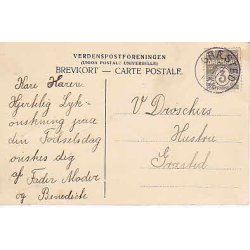 VERDENSPOSTFORENINGEN
(UNION POSTALE UNIVERSELLE)
BREVKORT — CARTE POSTALE.
GRÆSTED
3
Kære Haren
Hjertelig Lyk-
ønskning paa
din Fødselsdag
ønskes dig
af Fader Moder
og Benedicte
V Drøschers
Hustru
Græsted